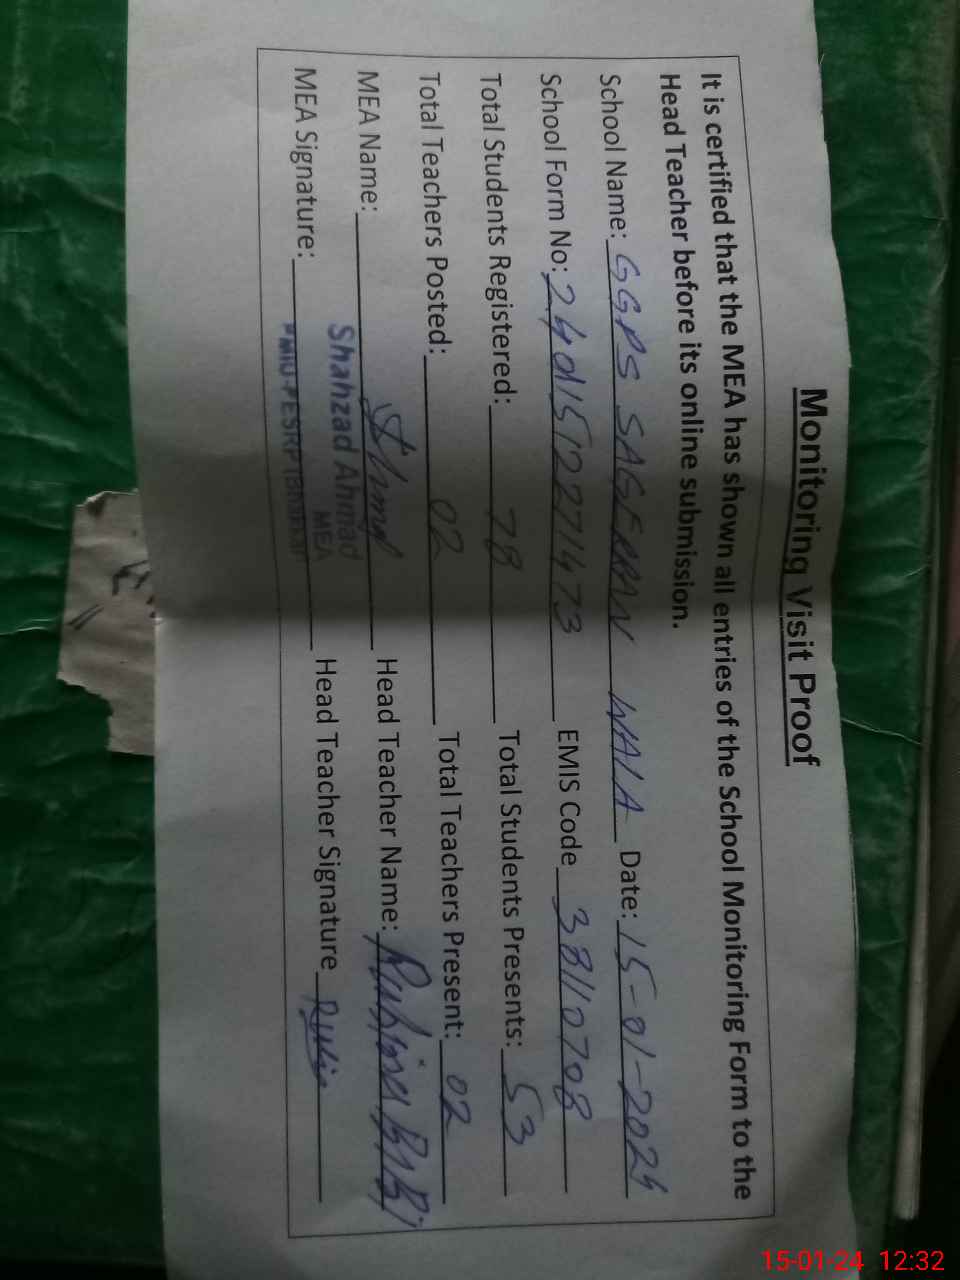 Monitoring Visit Proof
It is certified that the MEA has shown all entries of the School Monitoring Form to the
Head Teacher before its online submission.
School Name: GGPS SAGERRAN WALA Date: 15-01-2024
School Form No: 24d1512271473 EMIS Code 38110708
Total Students Registered: 78 Total Students Presents: 53
Total Teachers Posted: 02 Total Teachers Present: 02
MEA Name: Head Teacher Name: Bibi
Shahzad Ahmad
MEA
MEA Signature: Head Teacher Signature
15-01-24 12:32